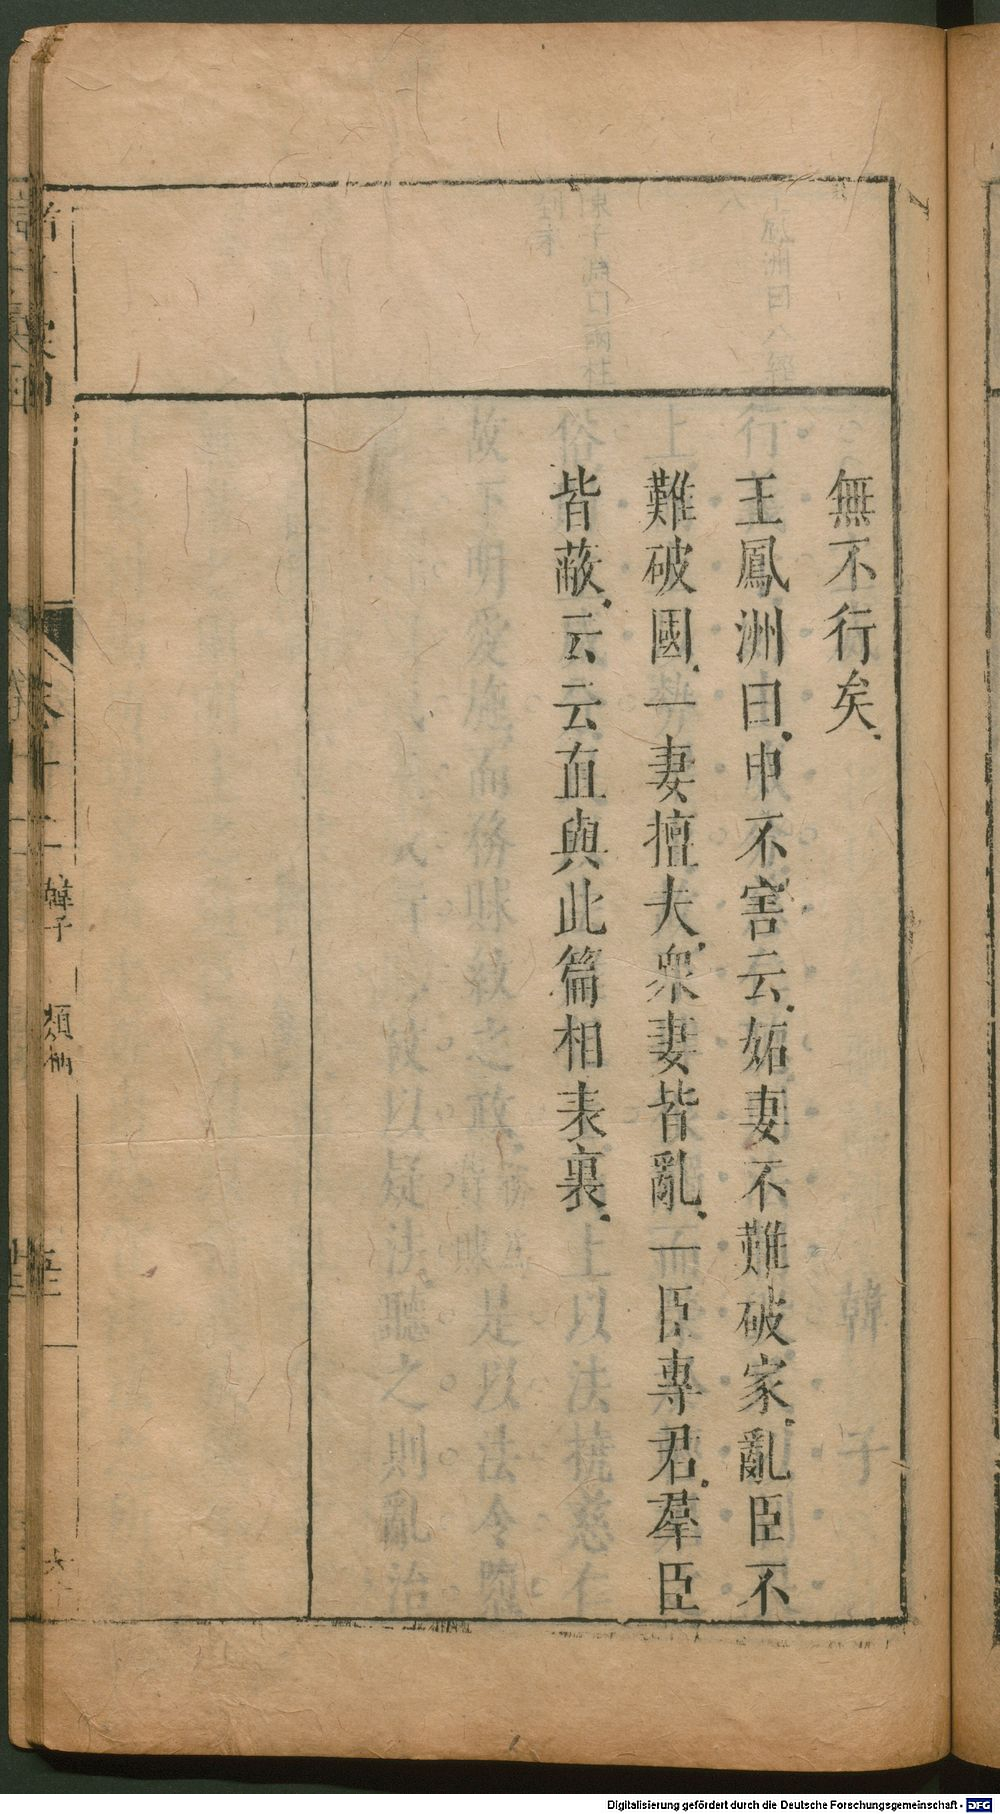 無不行矣
王鳳洲曰申不害云妬妻不難破家亂臣不
難破國一妻擅夫衆妻皆亂一臣專君羣臣
皆蔽云云直與此篇相表裏
卷十二
韓子
Digitalisierung gefördert durch die Deutsche Forschungsgemeinschaft - DFG